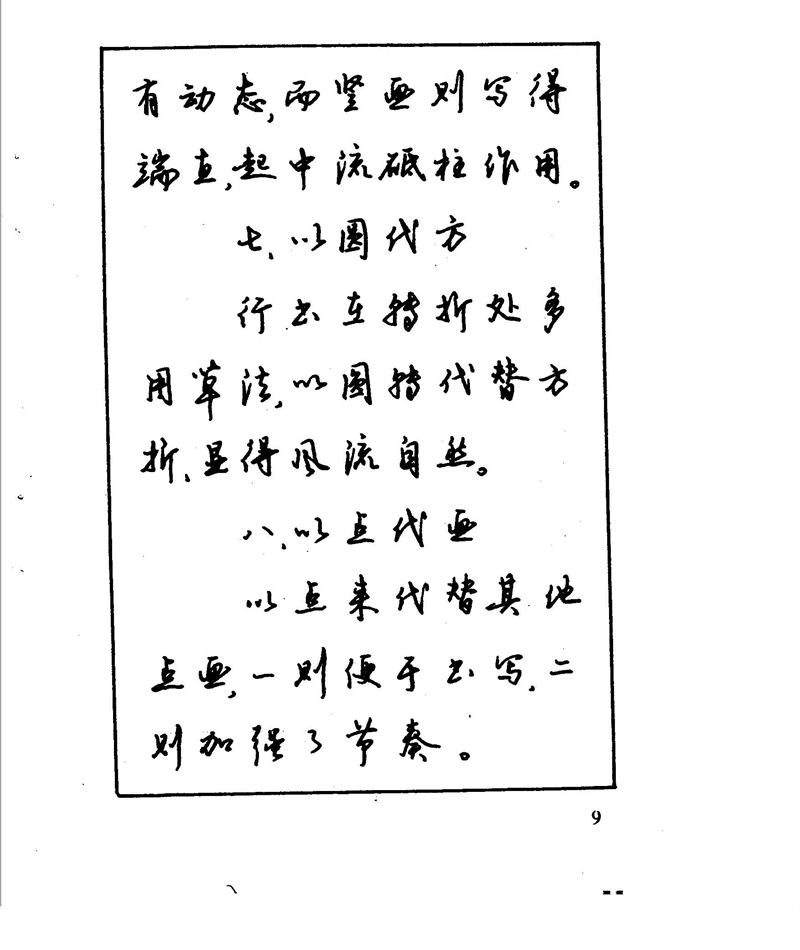 有动态,而竖画则写得
端直,起中流砥柱作用。
七、以圆代方
行书在转折处多
用草法,以圆转代替方
折,显得风流自然。
八、以点代画
以点来代替其他
点画,一则便于书写,二
则加强了节奏。
9